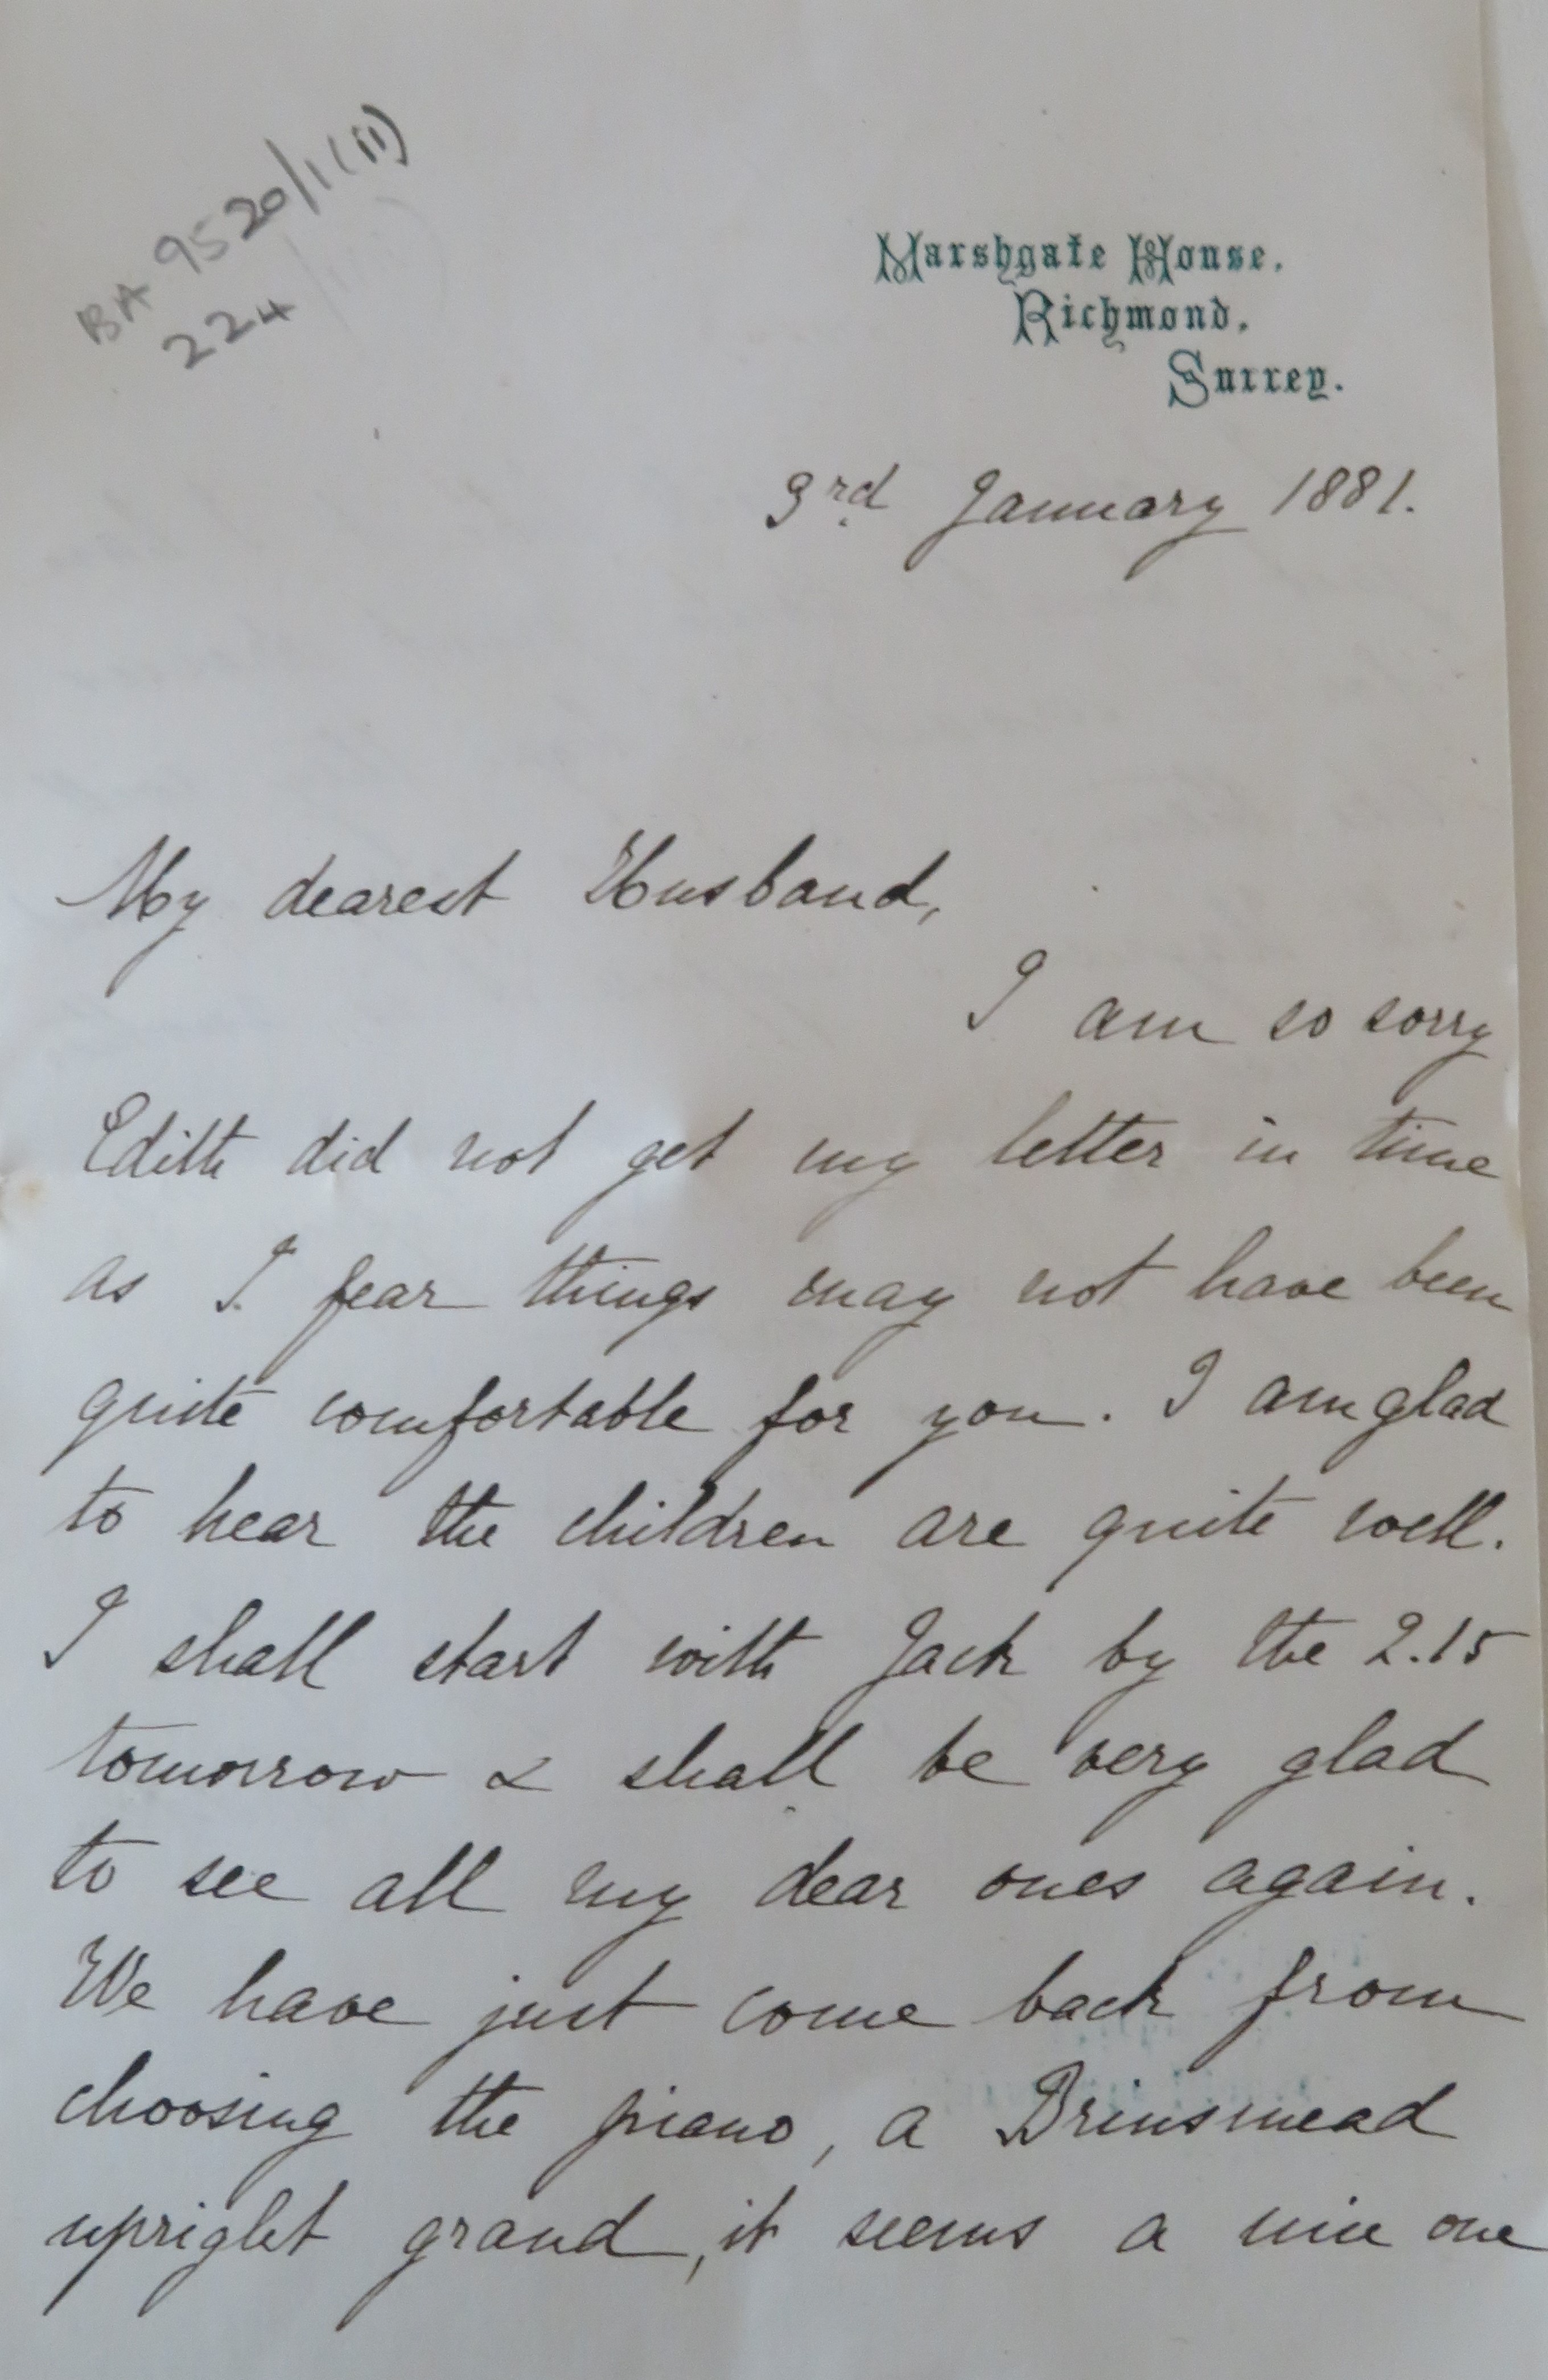 BA 9520/1(ii)
224
Marshgate House,
Richmond,
Surrey.
3rd January 1881.
My dearest Husband,
I am so sorry
Edith did not get my letter in time
as I fear things may not have been
quite comfortable for you. I am glad
to hear the children are quite well.
I shall start with Jack by the 2.15
tomorrow & shall be very glad
to see all my dear ones again.
We have just come back from
choosing the piano, a Brinsmead
upright grand, it seems a nice one